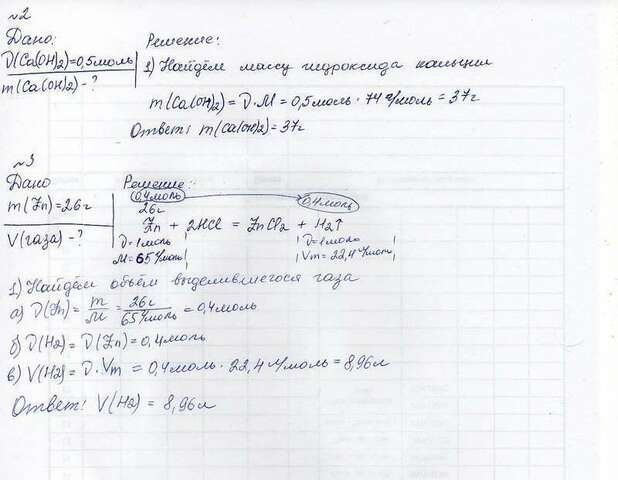 №2
Дано:
D(Ca(OH)2)=0,5моль
m(Ca(OH)2)-?
Решение:
1) Найдём массу гидроксида кальция
m(Ca(OH)2) = D·M = 0,5моль · 74 г/моль = 37г
Ответ: m(Ca(OH)2)=37г
№3
Дано
m(Zn)=26г
V(газа)-?
Решение:
0,4моль 0,4моль
26г
Zn + 2HCl = ZnCl2 + H2↑
D=1моль D=1моль
M=65г/моль Vm=22,4л/моль
1) Найдём объём выделившегося газа
а) D(Zn) = m/M = 26г/65г/моль = 0,4моль
б) D(H2) = D(Zn) = 0,4моль
в) V(H2) = D·Vm = 0,4моль · 22,4 л/моль = 8,96л
Ответ: V(H2) = 8,96л